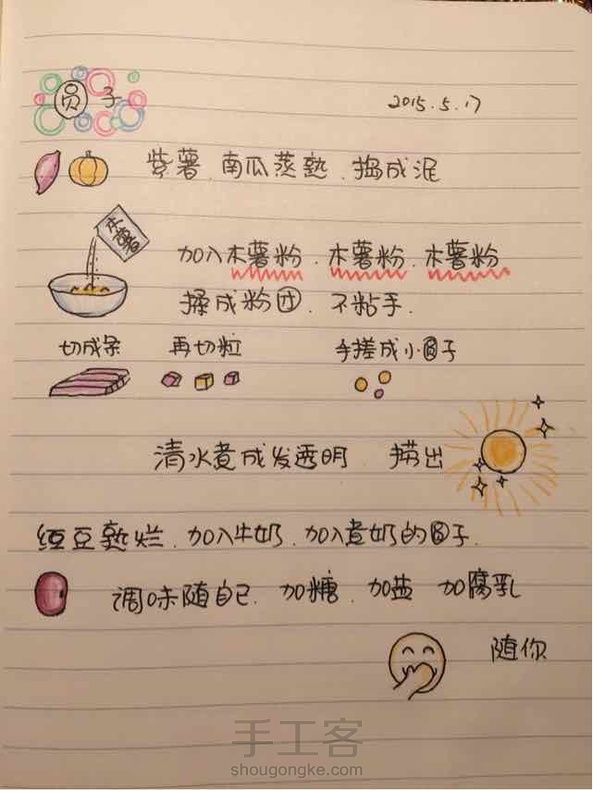 圆子 2015.5.17
紫薯.南瓜蒸熟.捣成泥
木薯
加入木薯粉.木薯粉.木薯粉
揉成粉团.不粘手.
切成条 再切粒 手搓成小圆子
清水煮成发透明 捞出
红豆熟烂.加入牛奶.加入煮奶的圆子.
调味随自己.加糖.加盐 加腐乳
随你
手工客
shougongke.com